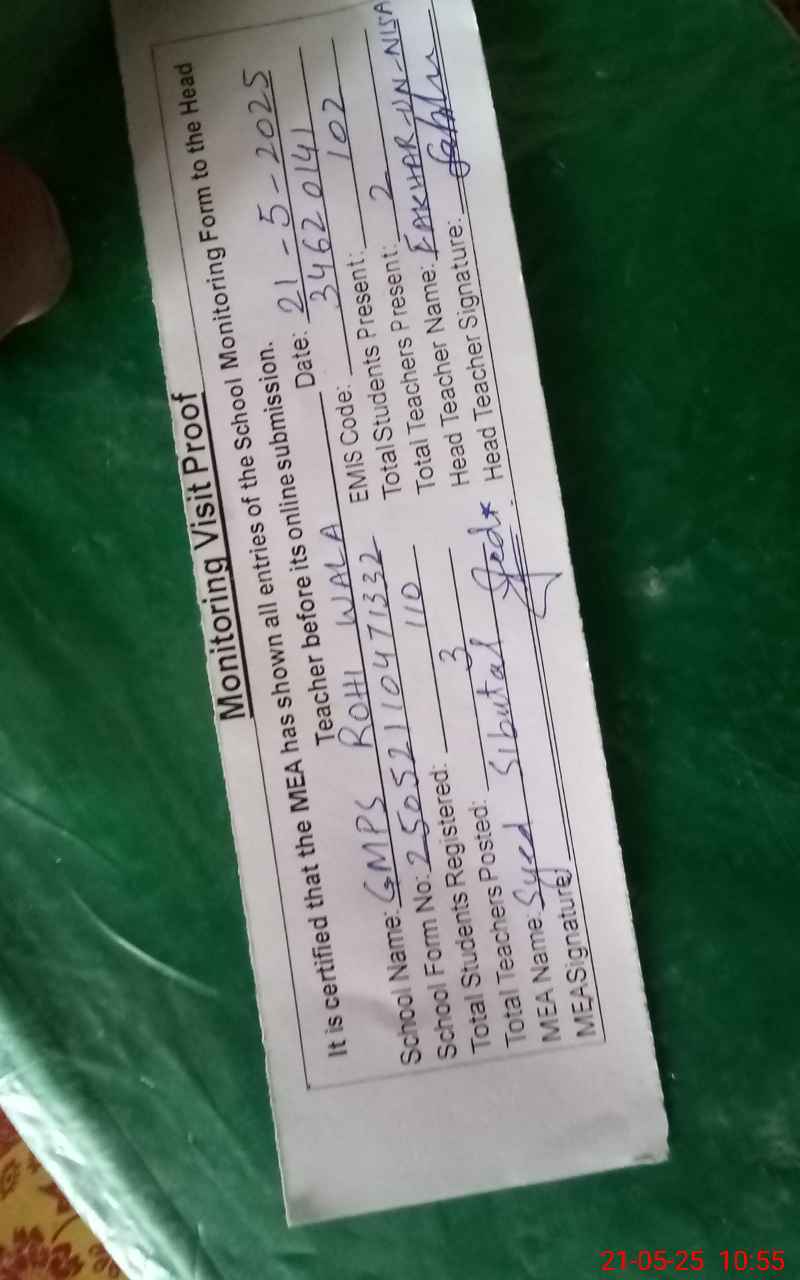 Monitoring Visit Proof
It is certified that the MEA has shown all entries of the School Monitoring Form to the Head
Teacher before its online submission.
School Name: GMPS ROHI WALA Date: 21-5-2025
School Form No: 2505211047 1332 EMIS Code: 34620141
Total Students Registered: 110 Total Students Present: 102
Total Teachers Posted: 3 Total Teachers Present: 2
MEA Name: Syed Sibutal Head Teacher Name: FAKHAR-UN-NISA
MEA Signature: Head Teacher Signature:
21-05-25 10:55